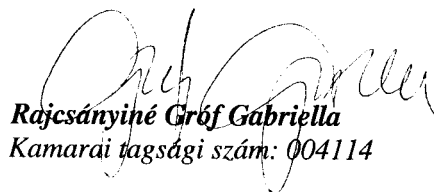 Rajcsányiné Gróf Gabriella
Kamarai tagsági szám: 004114